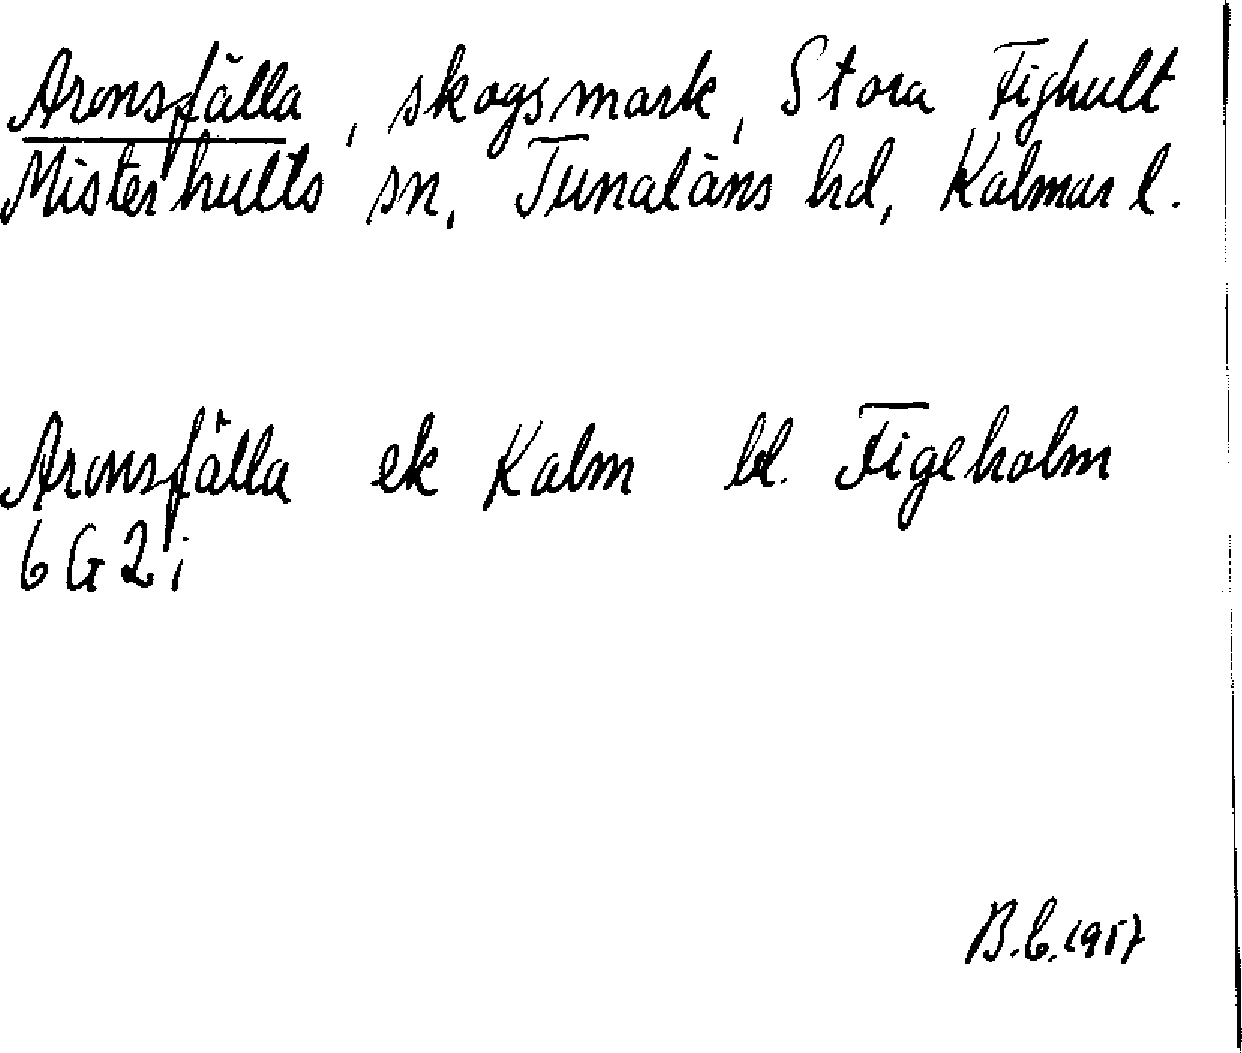 Aronsfälla, skogsmark, Stora Fighult
Misterhults sn, Tunaläns hd, Kalmar l.
Aronsfälla ek Kalm bl. Figeholm
6 G 2 i
B.C. 1957